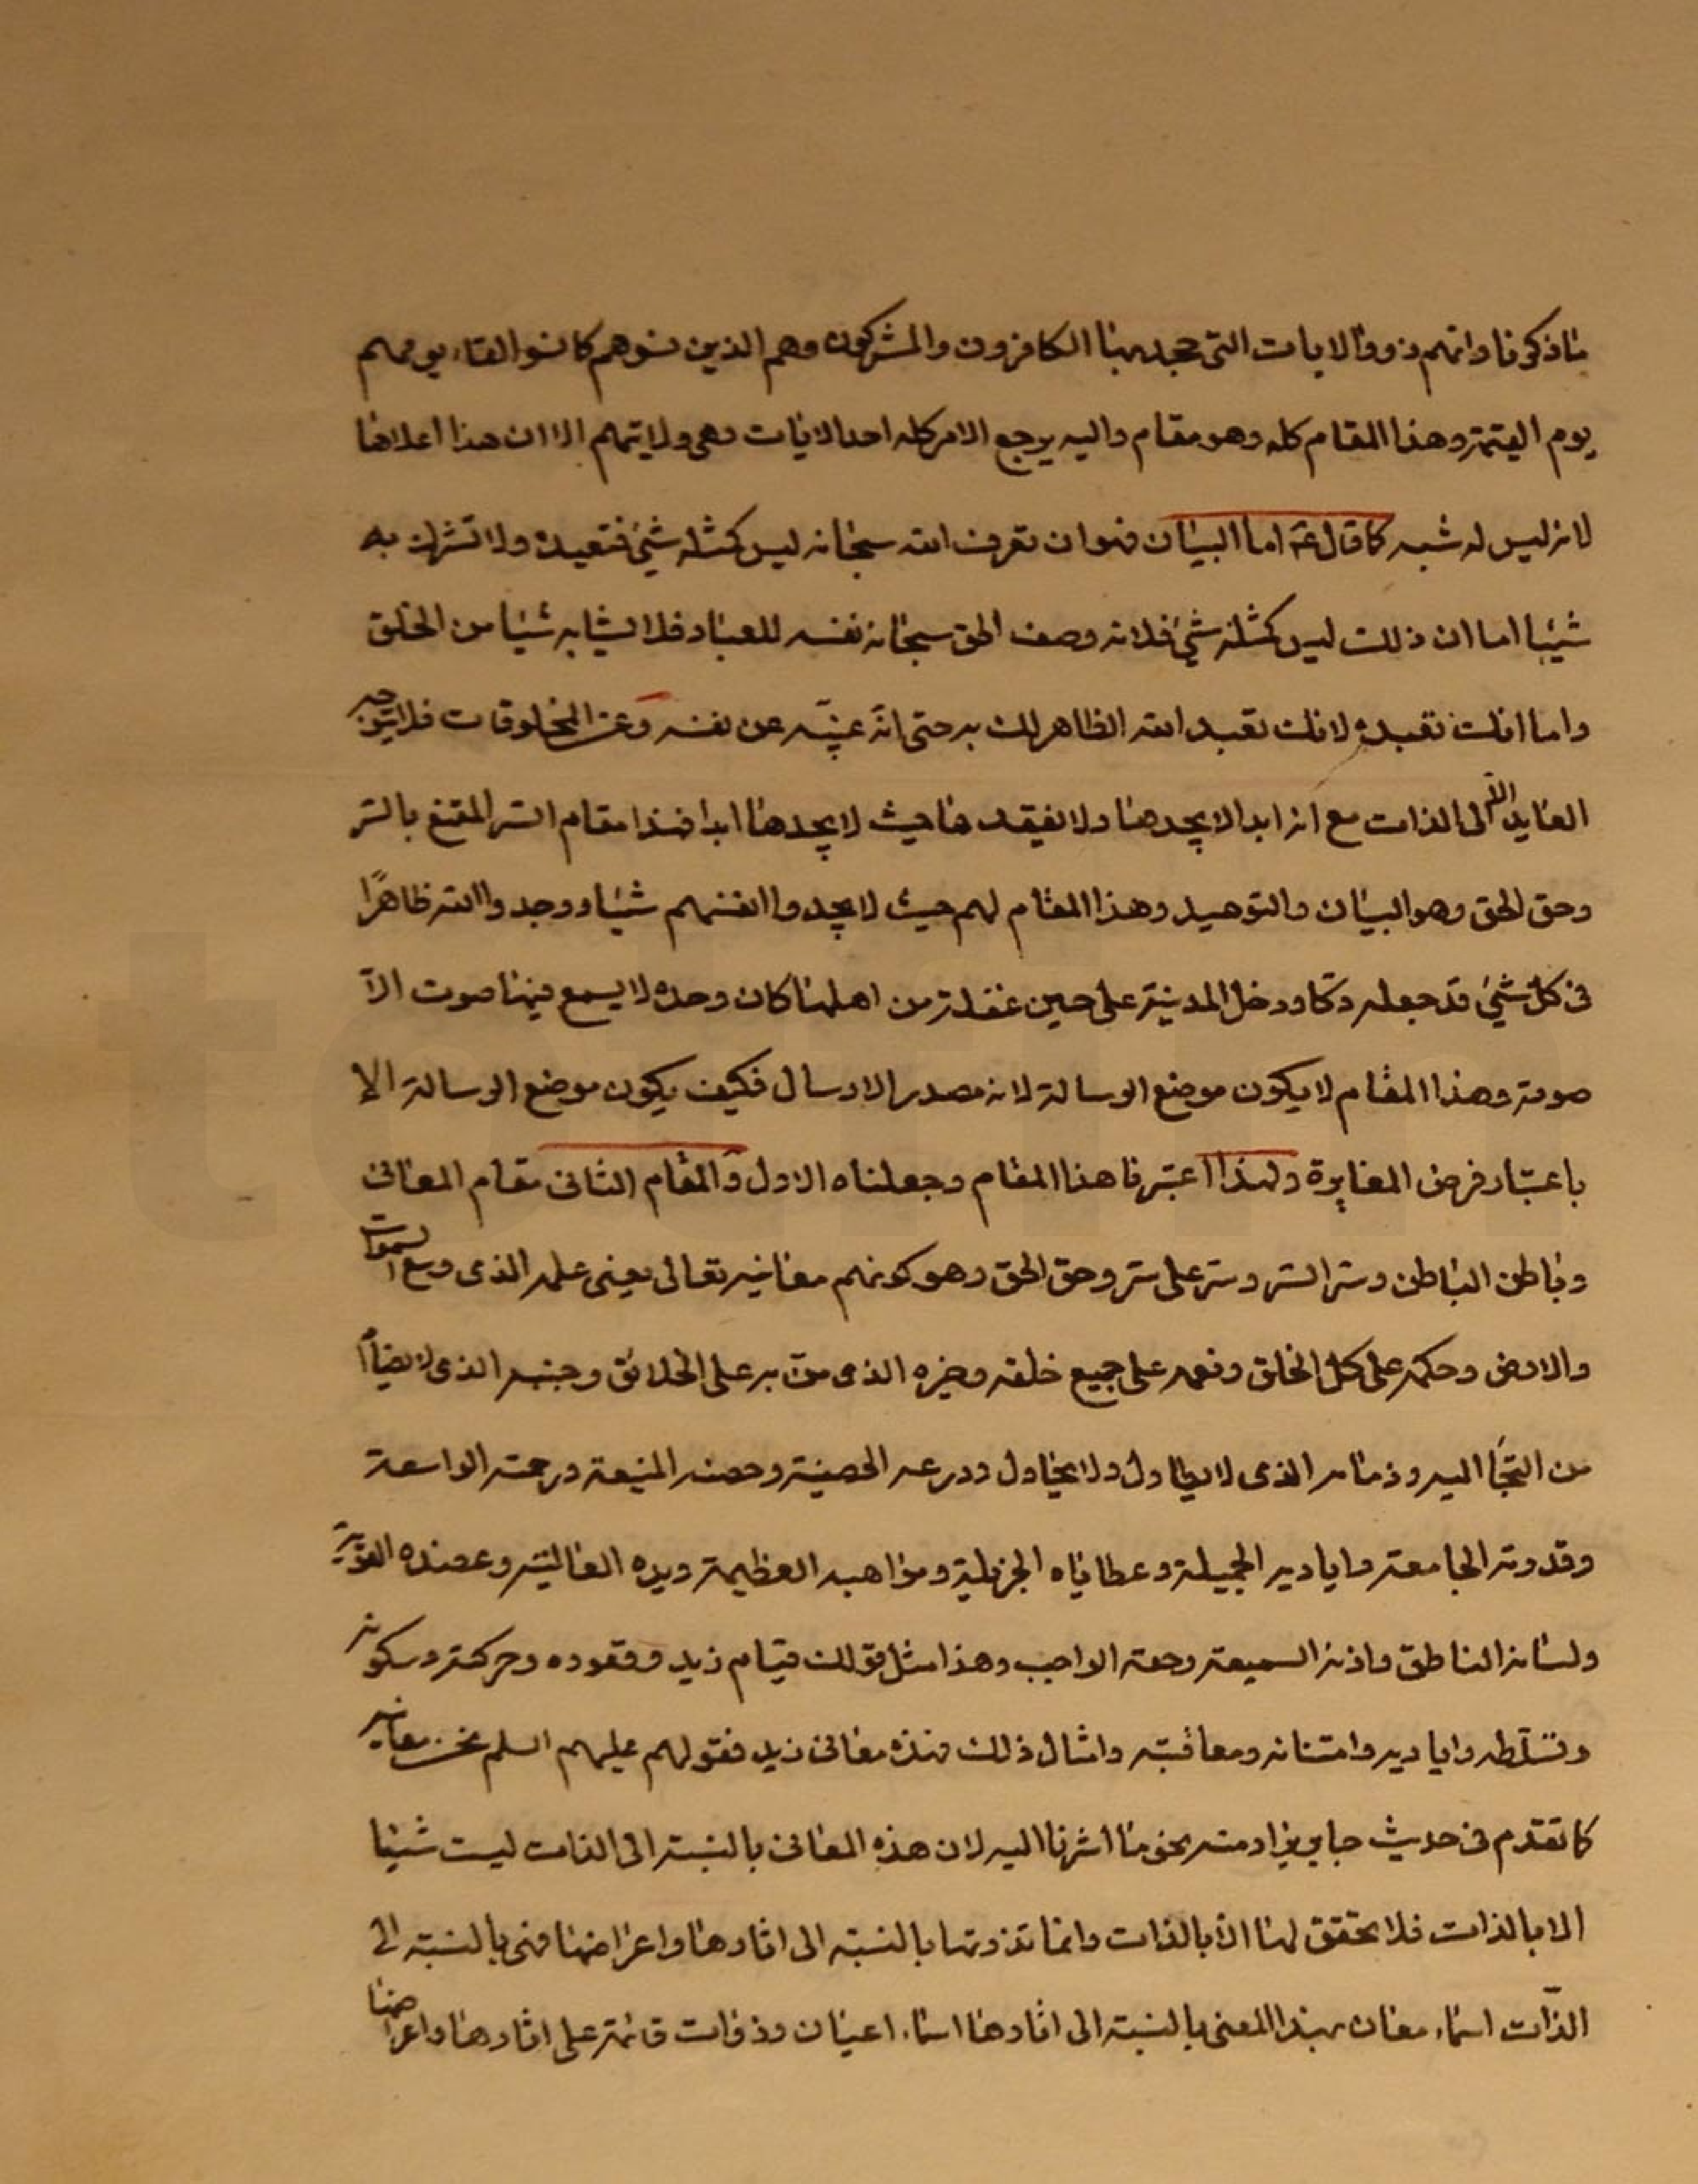 ما ذكرنا وانهم ذووا الايات التى جحد بها الكافرون والمشركون وهم الذين نسوهم كما نسوا لقاء يومهم
يوم القيمة وهذا المقام كله وهو مقام واليه يرجع الامر كله احد الايات وهى ولايتهم الا ان هذا اعلاها
لانه ليس له شبه كما قال ع اما البيان فهو ان تعرف الله سبحانه ليس كمثله شئ فتعبده ولا تشرك به
شيئا اما ان ذلك ليس كمثله شئ فلانه وصف الحق سبحانه نفسه للعباد فلا يشابه شيئا من الخلق
واما انك تعبده لانك تعبد الله الظاهر لك به حتى انه غيبه عن نفسه وعن المخلوقات فلا يتوجه
العابد الا الى الذات مع انه ابدا لا يجدها ولا يفقدها حيث لا يجدها ابدا فهذا مقام السر المقنع بالسر
وحق الحق وهو البيان والتوحيد وهذا المقام لهم حيث لا يجدوا انفسهم شيئا ووجدوا الله ظاهرًا
فى كل شئ قد جعله دكا ودخل المدينة على حين غفلة من اهلها كان وحده لا يسمع فيها صوت الا
صوته وهذا المقام لا يكون موضع الرسالة لانه مصدر الارسال فكيف يكون موضع الرسالة الا
باعتبار فرض المغايرة ولهذا اعتبرنا هذا المقام وجعلناه الاول والمقام الثانى مقام المعانى
وباطن الباطن وسر السر وسر على سر وحق الحق وهو كونهم معانيه تعالى يعنى علمه الذى وسع السموات
والارض وحكمه على كل الخلق ونعمه على جميع خلقه وخيره الذى من به على الخلائق وجنبه الذى لا يضام
من التجأ اليه وذمامه الذى لا يطاول ولا يحاول ودرعه الحصينة وحصنه المنيعة ورحمته الواسعة
وقدرته الجامعة واياديه الجميلة وعطاياه الجزيلة ومواهبه العظيمة ويده العالية وعضده القوية
ولسانه الناطق واذنه السميعة وحقه الواجب وهذا مثل قولك قيام زيد وقعوده وحركته وسكونه
وتسلطه واياديه وامتنانه ومعاقبته وامثال ذلك فهذه معانى زيد فقولهم عليهم السلم نحن معانيه
كما تقدم فى حديث جابر يراد منه نحو ما اشرنا اليه لان هذه المعانى بالنسبة الى الذات ليست شيئا
الا بالذات فلا تحقق لها الا بالذات وانما تذوتها بالنسبة الى اثارها واعراضها فهى بالنسبة الى
الذات اسماء معان بهذا المعنى بالنسبة الى اثارها اسماء اعيان وذوات قائمة على اثارها واعراضها